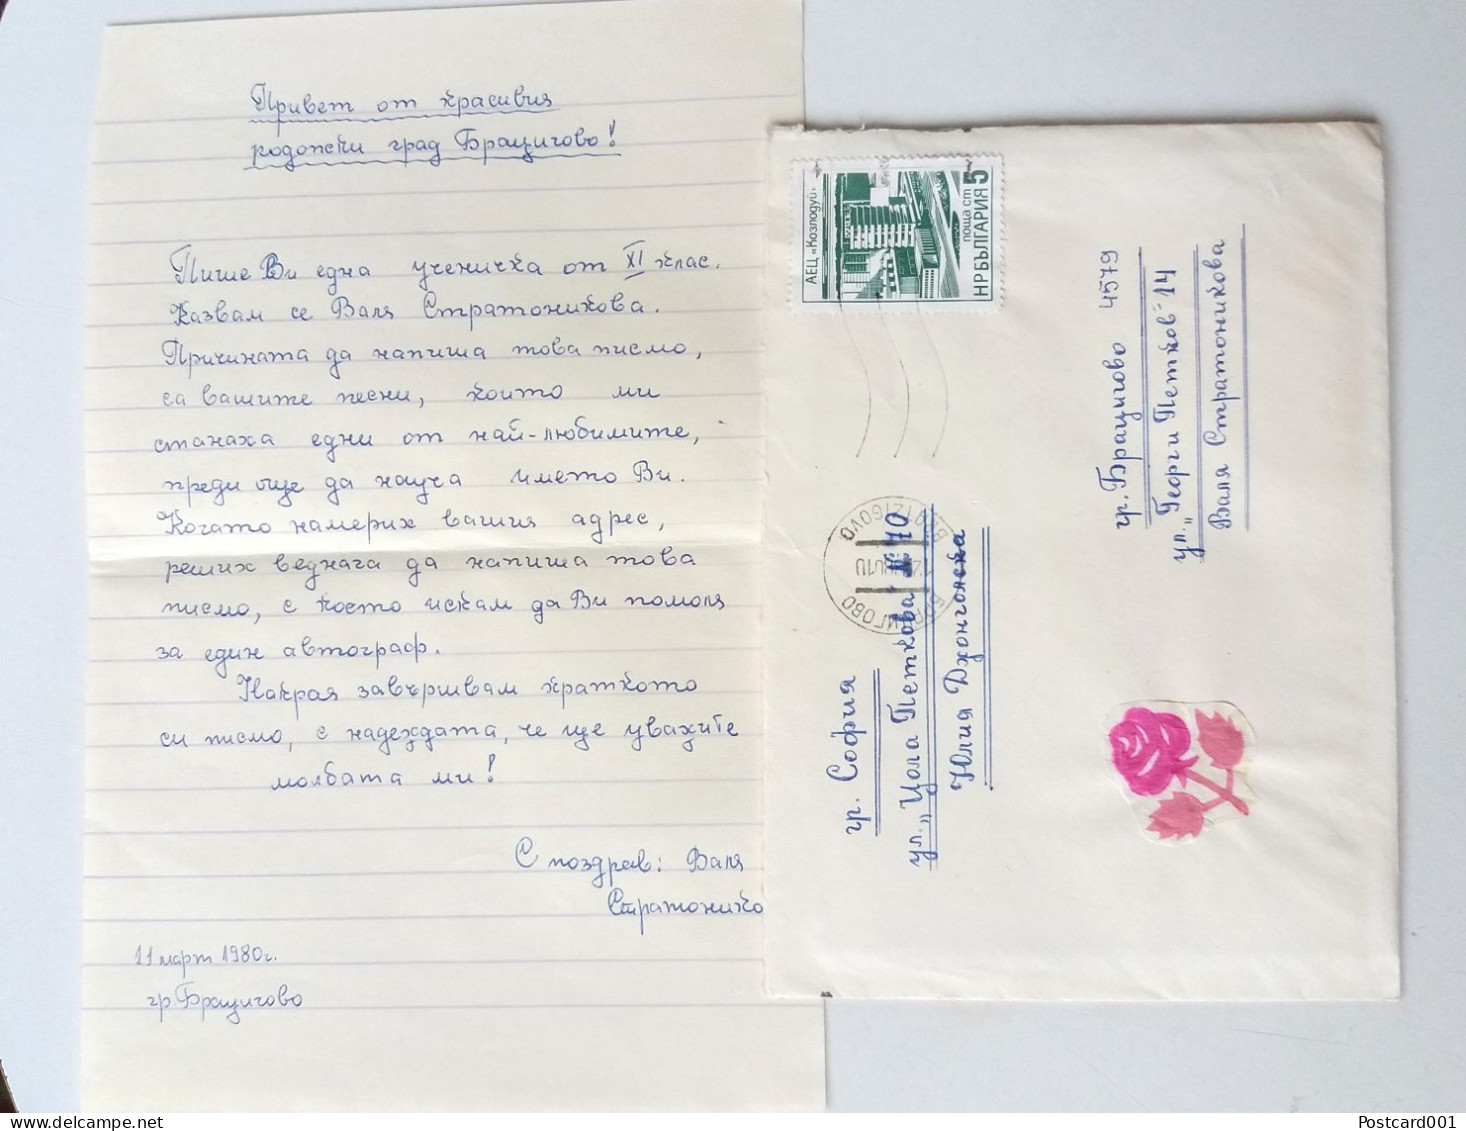 Привет от красивия
родопски град Брацигово!
Пише Ви една ученичка от XI клас.
Казвам се Валя Стратоникова.
Причината да напиша това писмо,
са вашите песни, които ми
станаха едни от най-любимите,
преди още да науча името Ви.
Когато намерих вашия адрес,
реших веднага да напиша това
писмо, с което искам да Ви помоля
за един автограф.
Накрая завършвам краткото
си писмо, с надеждата, че ще уважите
молбата ми!
С поздрав: Валя
Стратонико
11 март 1980г.
гр. Брацигово
АЕЦ «Козлодуй»
НР БЪЛГАРИЯ
поща ст 5
BRATZIGOVO
гр. София
ул. „Цола Петкова" № 70
Юлия Джонгонска
гр. Брацигово 4579
ул. „Георги Петков" 14
Валя Стратоникова
Postcard001